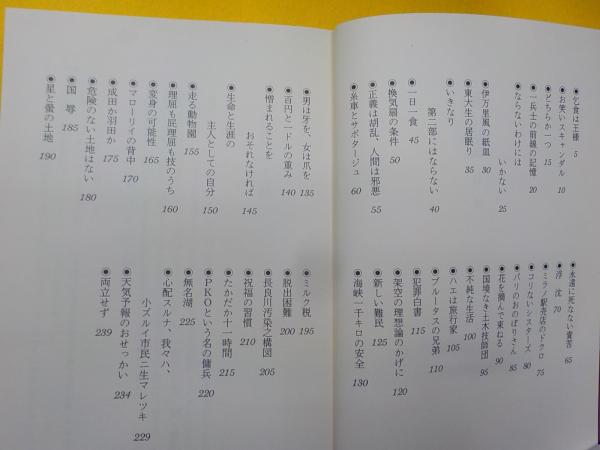 乞食は王様 5
お使いスキャンダル 10
どちらか一つ 15
一兵士の前線の記憶 20
ならないわけには
いかない 25
伊万里風の紙皿 30
東大生の居眠り 35
いきなり
第二部にはならない 40
一日一食 45
換気扇の条件 50
正義は胡乱、人間は邪悪 55
糸車とサボタージュ 60
永遠に死なない責苦 65
浮沈 70
ミラノ駅売店のドクロ 75
コリないシスターズ 80
パリのおのぼりさん 85
花を摘んで束ねる 90
国境なき土木技師団 95
不純な生活 100
ハエは旅行家 105
ブルータスの兄弟 110
犯罪白書 115
架空の理想論のかげに 120
新しい難民 125
海峡一千キロの安全 130
男は牙を、女は爪を 135
百円と一ドルの重み 140
憎まれることを
おそれなければ 145
生命と生涯の
主人としての自分 150
走る動物園 155
理屈も屁理屈も技のうち 160
変身の可能性 165
マローリイの背中 170
成田か羽田か 175
危険のない土地はない 180
国辱 185
星と螢の土地 190
ミルク税 195
脱出困難 200
長良川汚染之構図 205
祝福の習慣 210
たかだか十一時間 215
PKOという名の傭兵 220
無名湖 225
心配スルナ、我々ハ、
小ズルイ市民ニ生マレツキ 229
天気予報のおせっかい 234
両立せず 239